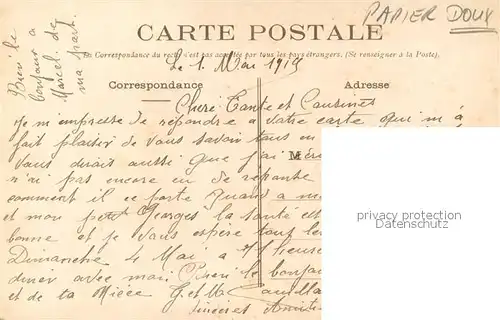 PAPIER DOUX
CARTE POSTALE
La Correspondance du recto n'est pas acceptée par tous les pays étrangers. (Se renseigner à la Poste).
Bien le
bonjour a
Marcel de
ma part.
Le 1. Mai 1913
Correspondance
Adresse
Chère Tante et Cousines
Je m'empresse de repondre a votre carte qui m'a
fait plaisir de vous savoir tous en
vous dirait aussi que j'ai
M
n'ai pas encore eu de reponse
comment il ce porte Quand a m
et mon petit Georges la santé est
bonne et je vous espère tout le
Dimanche 4 Mai a
diner avec moi Bien le bonjou
et de ta Nièce G et M
sincères Amiti
privacy protection
Datenschutz